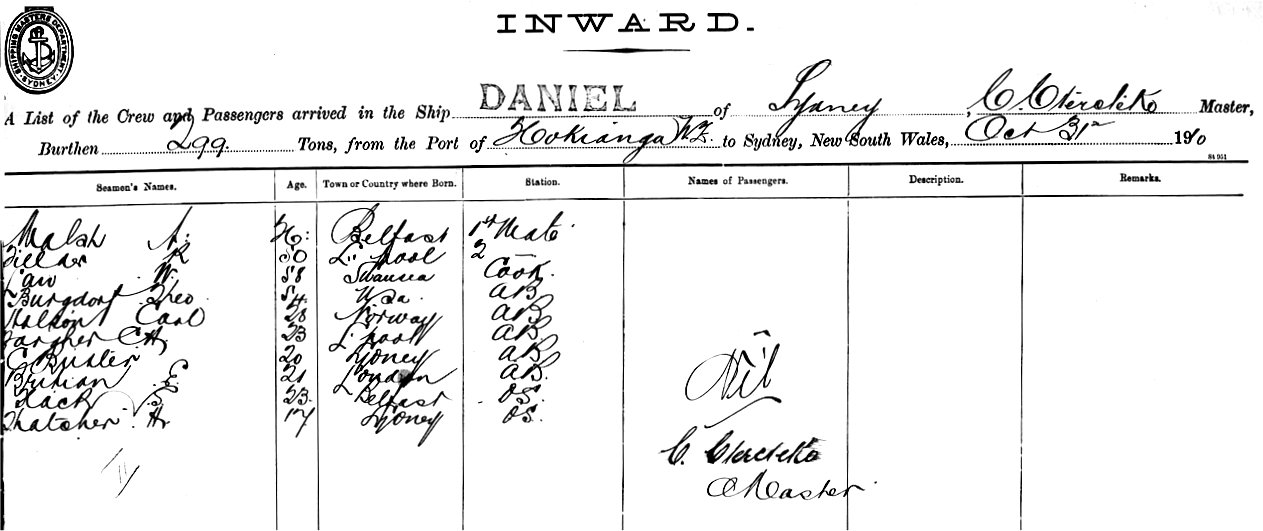 SHIPPING MASTERS DEPARTMENT. SYDNEY
INWARD.
A List of the Crew and Passengers arrived in the Ship DANIEL of Sydney, C. Master,
Burthen 299. Tons, from the Port of Hokianga N.Z. to Sydney, New South Wales, Oct 31st 1910
84 951
Seamen's Names. Age. Town or Country where Born. Station. Names of Passengers. Description. Remarks.
A. Belfast 1st Mate
R 50 L'pool 2
Law W. 58 Swansea Cook.
Burgdorf Theo 54 Usa. AB
Carl 28 Norway AB
C H 23 L'pool AB
C Butler 20 Sydney AB
E. 21 London AB.
23 Belfast OS.
Thatcher Hr 17 Sydney OS.
Nil
C.
Master